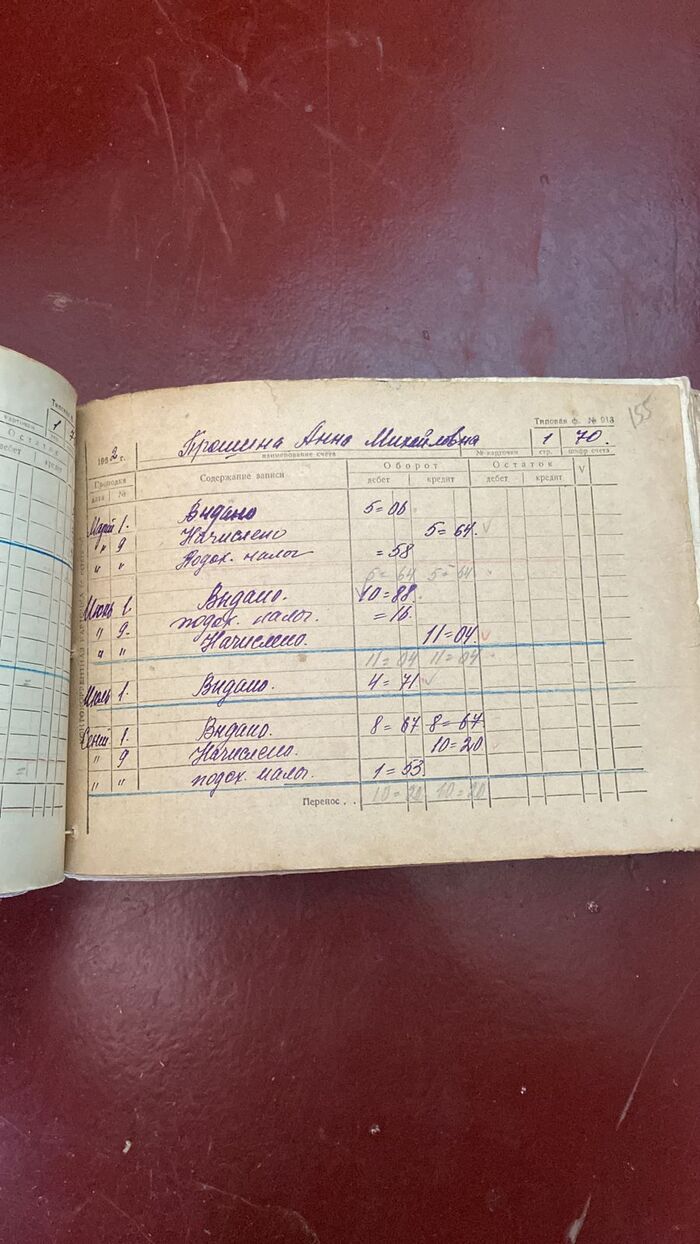 Типовая ф. № 013
155
1962 г.
Прошина Анна Михайловна
1
70.
наименование счета
№ карточки
стр.
шифр счета
Проводка
Содержание записи
Оборот
Остаток
V
дата
№
дебет
кредит
дебет
кредит
Март 1. Выдано 5=06
" 9 Начислено 5=64.
" " Подох. налог =58
5=64 5=64
Июнь 1. Выдано. 10=88.
" 9. подох. налог. =16
" " Начислено. 11=04
11=04 11=04
Июль 1. Выдано. 4=71
Сент 1. Выдано. 8=67 8=67
" 9 Начислено. 10=20
" " подох. налог. 1=53.
10=20 10=20
Перенос . .
Остаток
дебет
кредит